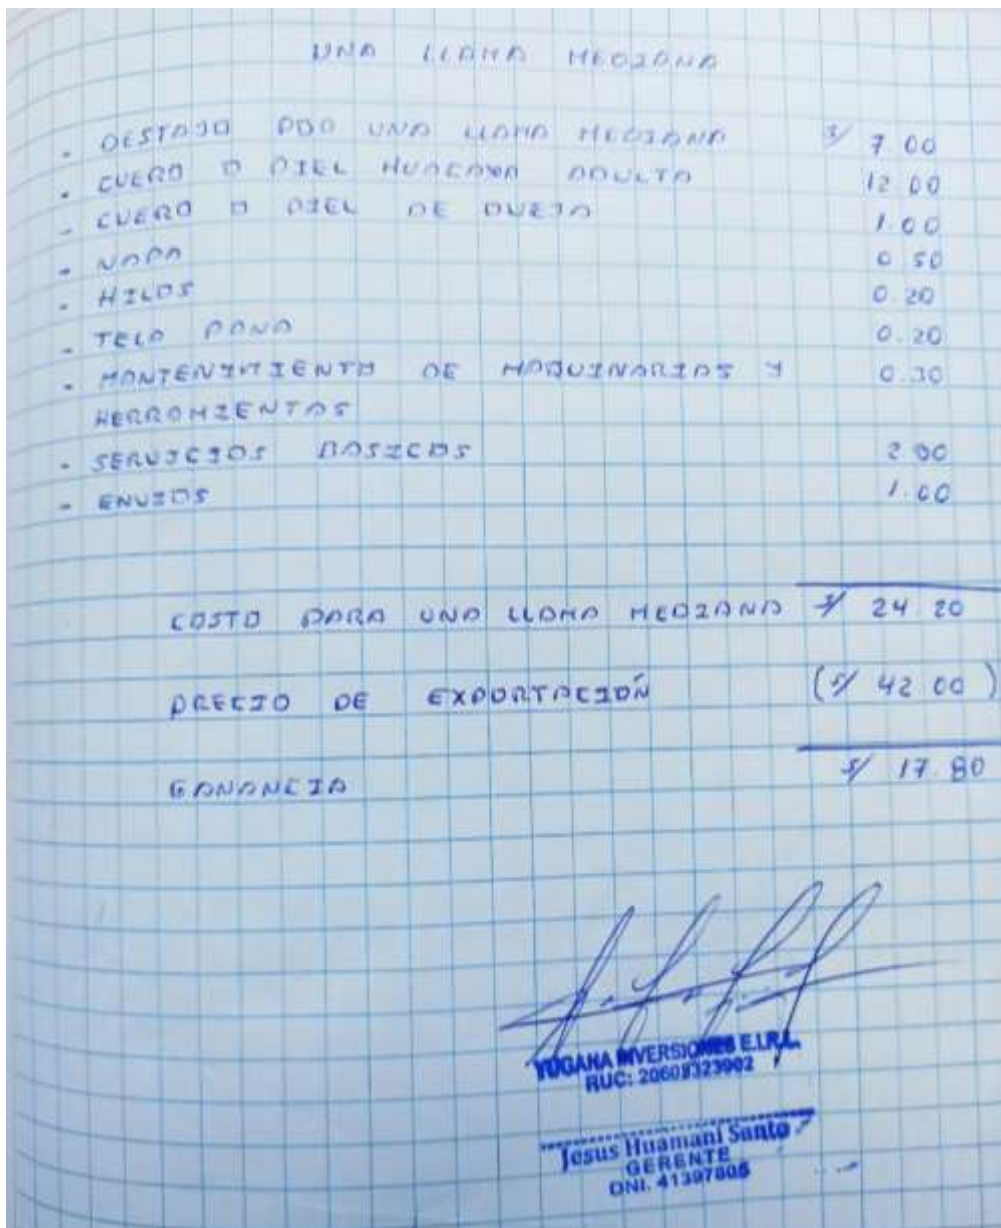 UNA LLAMA MEDIANA
- DESTAJO POR UNA LLAMA MEDIANA S/ 7.00
- CUERO O PIEL HUACAYA ADULTA 12.00
- CUERO O PIEL DE OVEJA 1.00
- NAPA 0.50
- HILOS 0.20
- TELA PANA 0.20
- MANTENIMIENTO DE MAQUINARIAS Y 0.30
HERRAMIENTAS
- SERVICIOS BASICOS 2.00
- ENVIOS 1.00
COSTO PARA UNA LLAMA MEDIANA S/ 24.20
PRECIO DE EXPORTACIÓN (S/ 42.00)
GANANCIA S/ 17.80
YUGANA INVERSIONES E.I.R.L.
RUC: 20609323902
Jesus Huamani Santo
GERENTE
DNI. 41397805